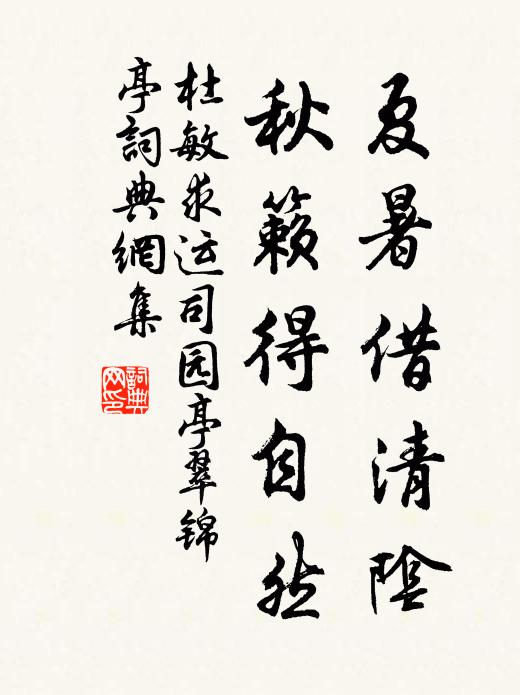 夏暑借清陰
秋籟得自然
杜敏求运司园亭翠锦
亭詞典網集
詞典
网印